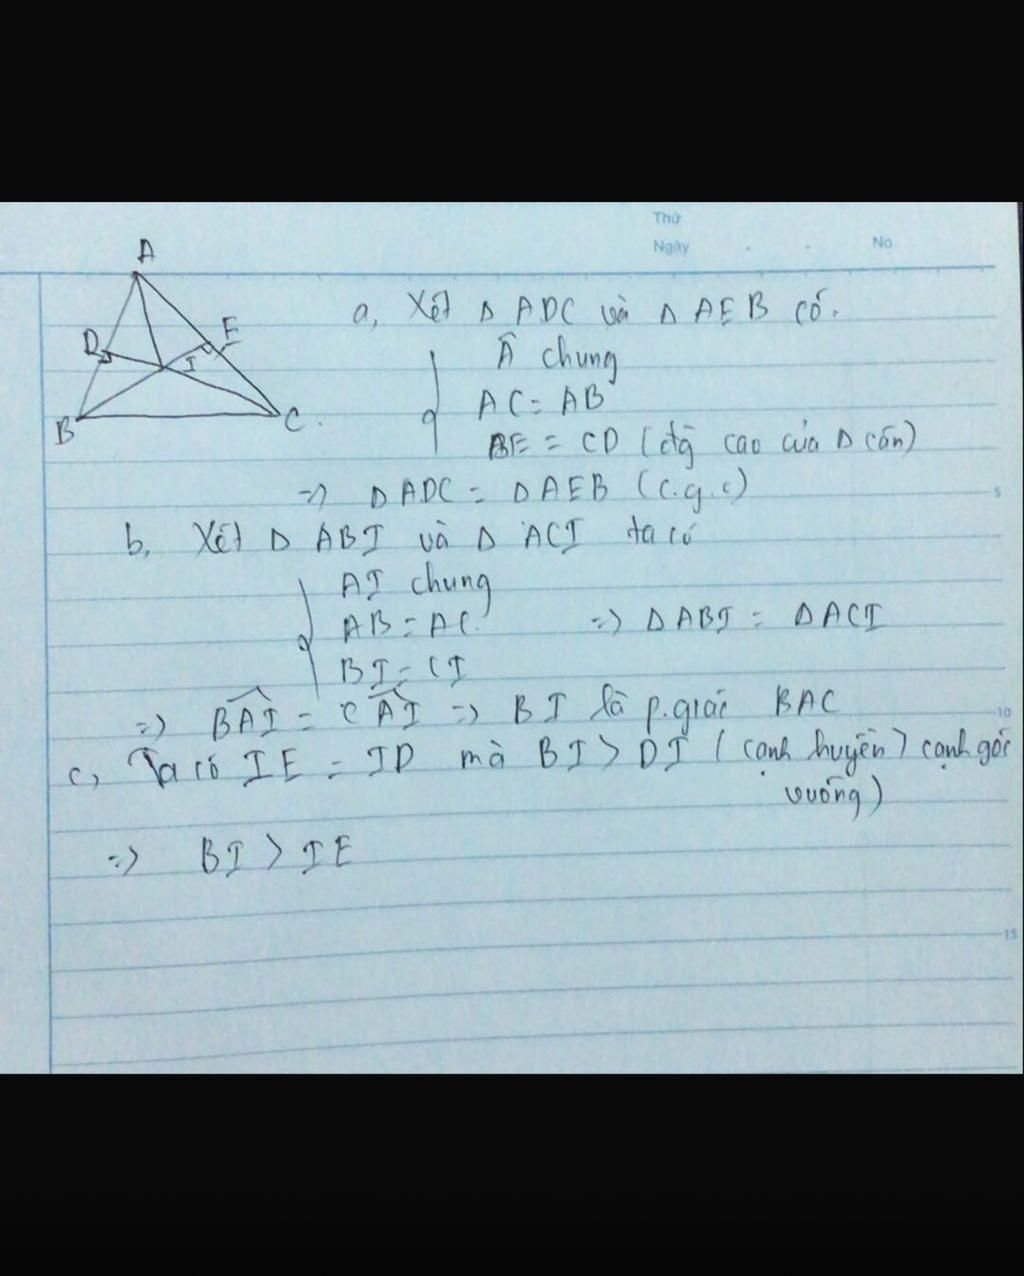 Thứ
Ngày . . No.
A
D
E
I
B
C.
a, Xét Δ ADC và Δ AEB có.
Â chung
AC = AB
BE = CD (đg cao của Δ cân)
=> Δ ADC = Δ AEB (c.g.c)
5
b, Xét Δ ABI và Δ ACI ta có
AI chung
AB = AC. => Δ ABI = Δ ACI
BI = CI
=> BAI = CAI => BI là p.giác BAC
10
c, Ta có IE = ID mà BI > DI (cạnh huyền > cạnh góc
vuông)
=> BI > IE
15